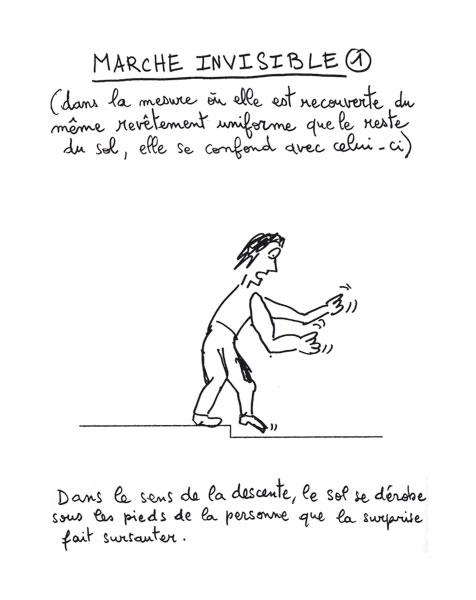 MARCHE INVISIBLE ①
(dans la mesure où elle est recouverte du
même revêtement uniforme que le reste
du sol, elle se confond avec celui-ci)
Dans le sens de la descente, le sol se dérobe
sous les pieds de la personne que la surprise
fait sursauter.